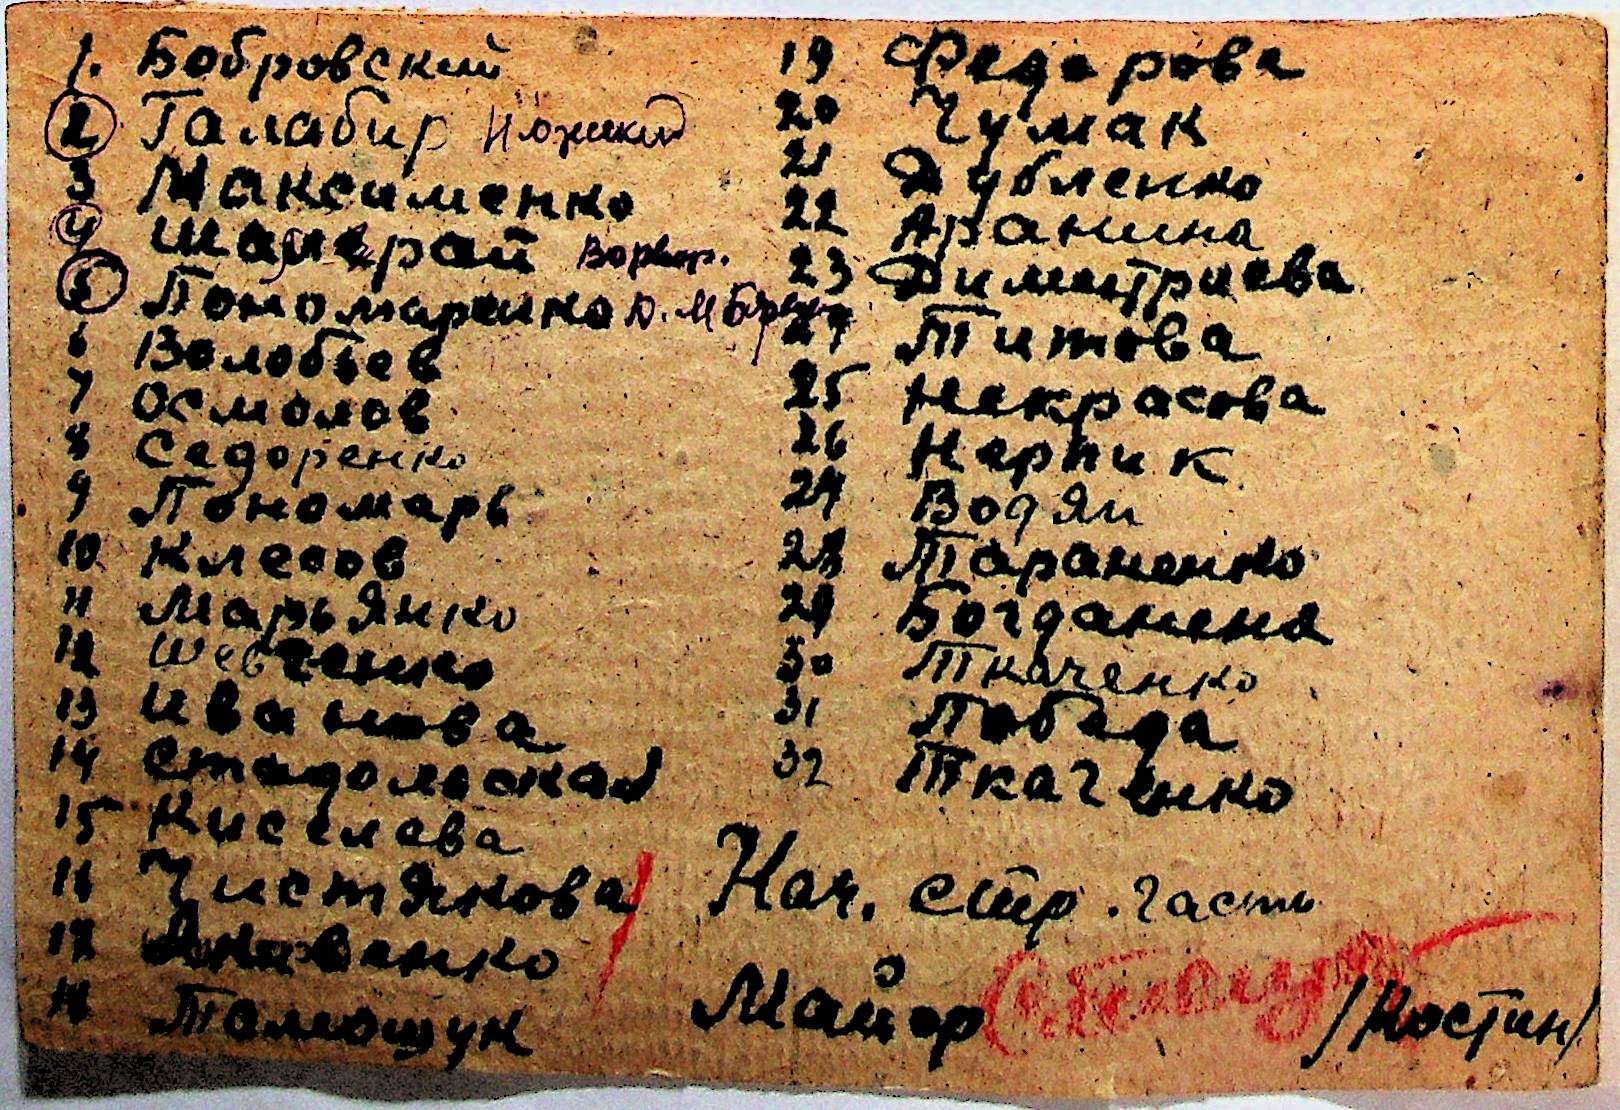 1. Бобровский
2 Галабир
3 Максименко
4 Шаперай
5 Пономаренко
6 Волобьев
7 Осмолов
8 Седоренко
9 Пономарь
10 Клесов
11 Марьянко
12 Шевченко
13 Иванова
14 Стадольская
15 Киселева
16 Чистякова
17
18 Толмощук
19 Федорова
20 Чумак
21 Дубленко
22 Аранина
23 Димитриева
24 Титова
25 Некрасова
26 Нарпик
27 Водян
28 Тараненко
29
30 Ткаченко
31 Победа
32 Ткаченко
Нач. стр. часть
Майор /Костин/